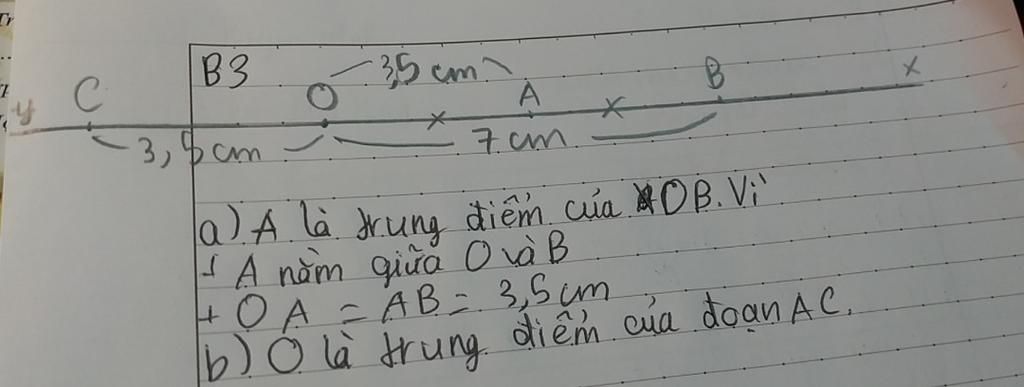 B3 3,5 cm
y C O A B x
3,5cm 7cm
a) A là trung điểm của OB. Vì
+ A nằm giữa O và B
+ OA = AB = 3,5cm
b) O là trung điểm của đoạn AC.